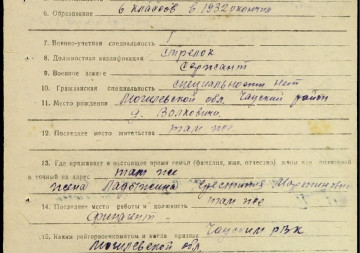 6. Образование 6 классов в 1932 окончил
7. Военно-учетная специальность 1
8. Должностная квалификация стрелок
9. Военное звание Сержант
10. Гражданская специальность специальности нет
11. Место рождения Могилевской обл. Чаусский район
Волковичи
12. Последнее место жительства там же
13. Где проживает в настоящее время семья (фамилия, имя, отчество) жены или родителей
и точный их адрес там же
жена
14. Последнее место работы и должность там же
15. Каким райгорвоенкоматом и когда призван Чаусским РВК
Могилевской обл.